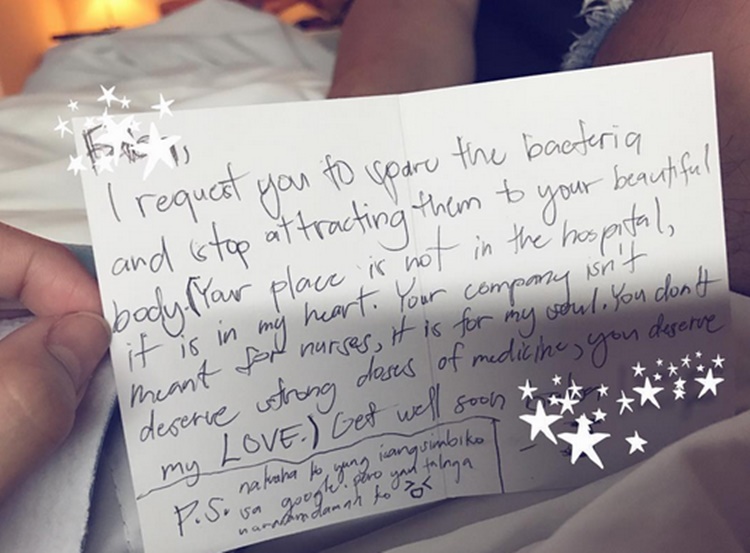 I request you to spare the bacteria
and stop attracting them to your beautiful
body. (Your place is not in the hospital,
it is in my heart. Your company isn't
meant for nurses, it is for my soul. You don't
deserve strong doses of medicine, you deserve
my LOVE.) Get well soon
P.S. nakuha ko yung isang sinabi ko
sa google pero yan talaga
nararamdaman ko